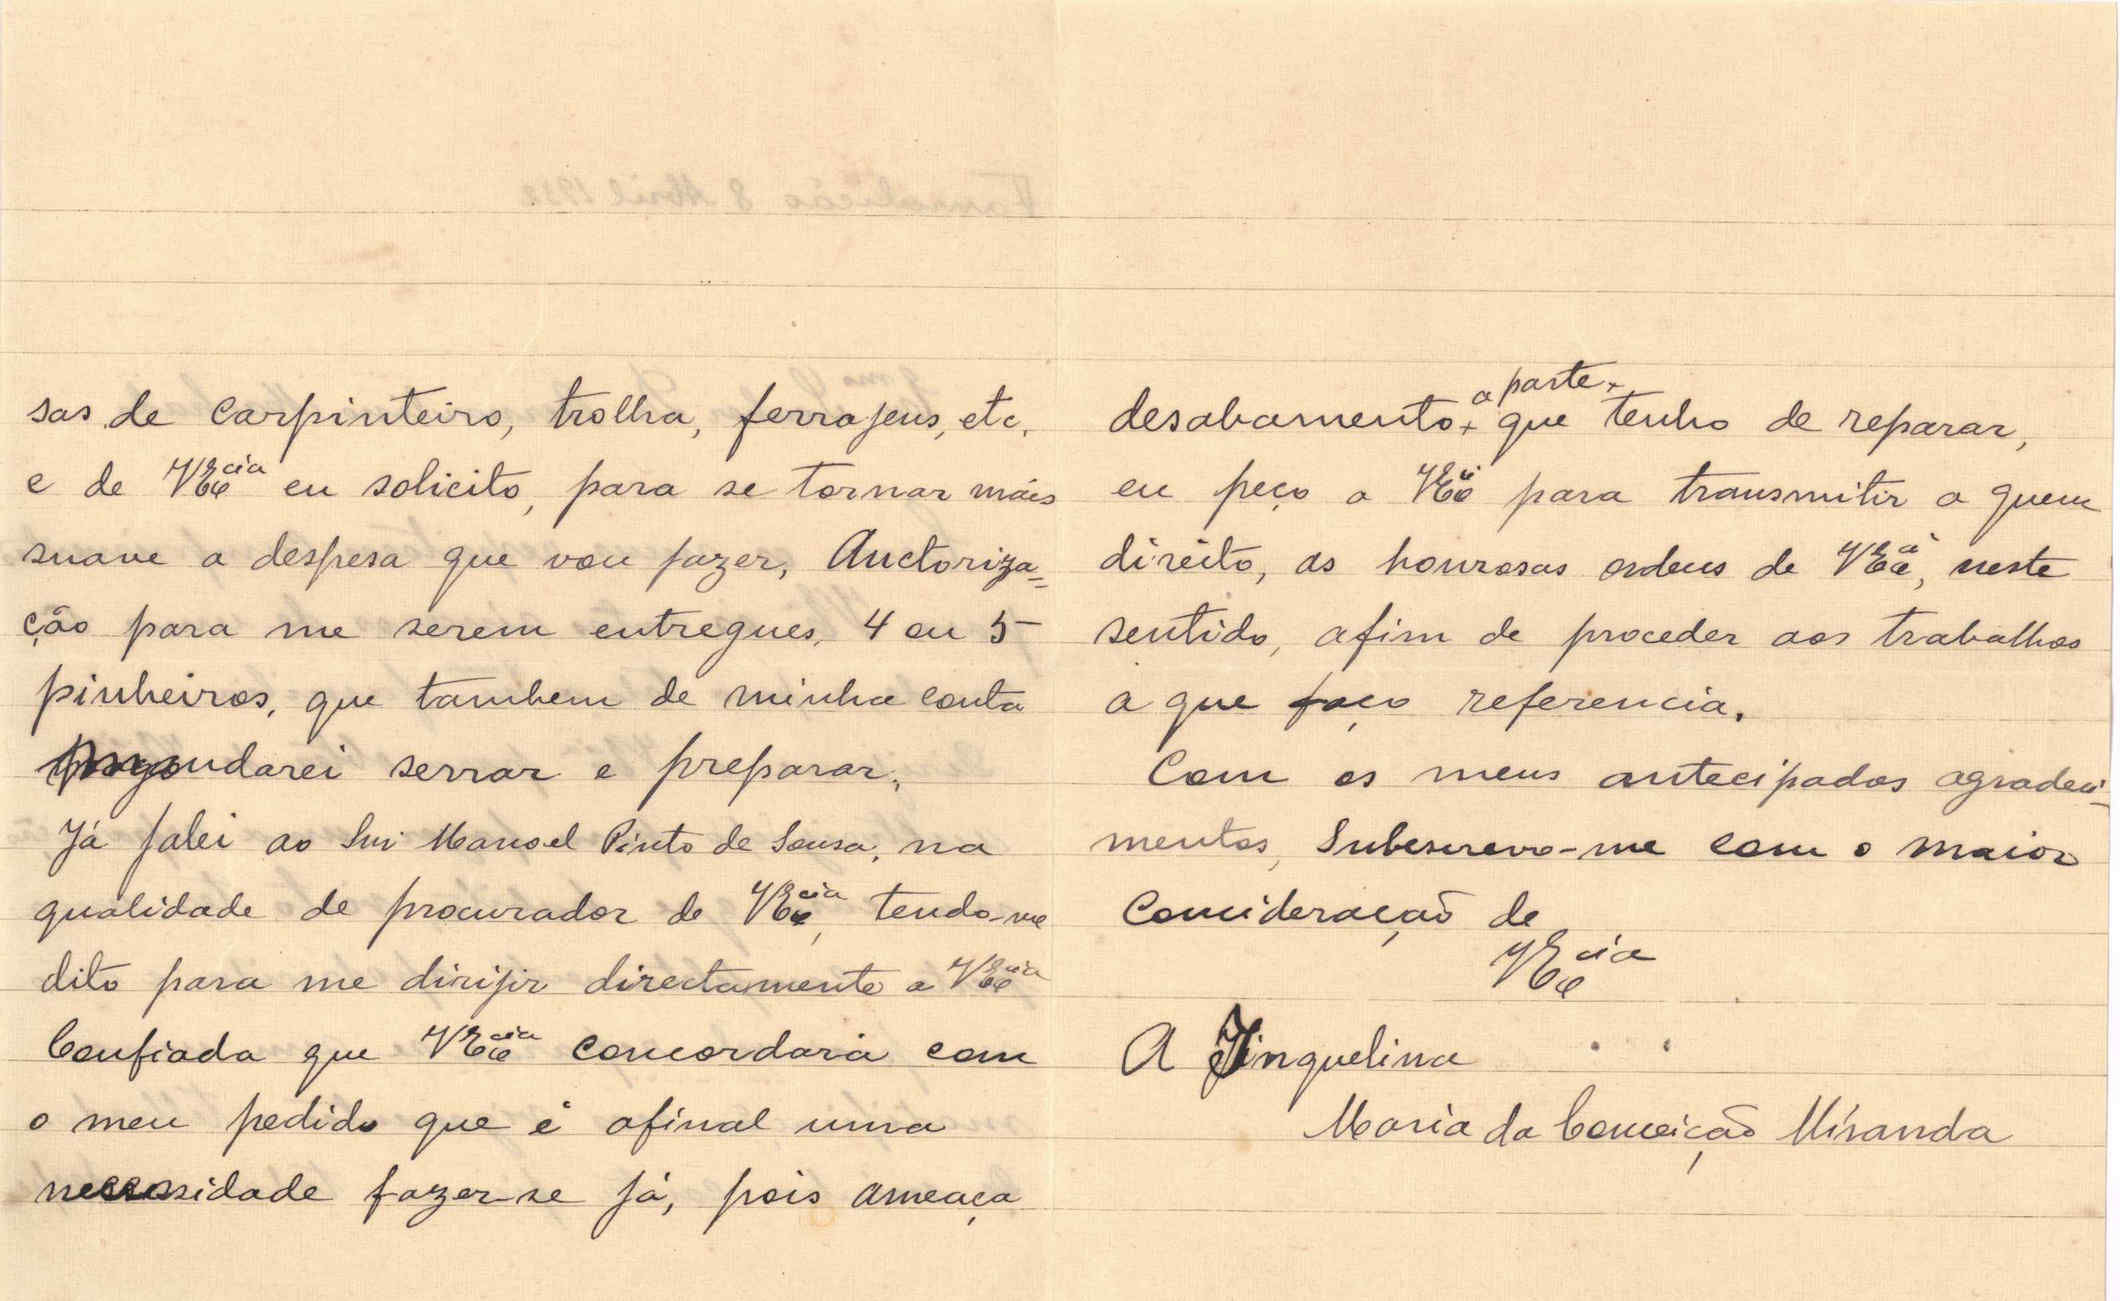 sas de carpinteiro, trolha, ferrajens, etc.
e de V Excia eu solicito, para se tornar máis
suave a despesa que vou fazer, Auctoriza=
ção para me serem entregues, 4 ou 5
pinheiros, que tambem de minha conta
mandarei serrar e preparar.
Já falei ao Snr Manoel Pinto de Sousa, na
qualidade de procurador de V Excia, tendo-me
dito para me dirijir directamente a V Excia
Confiada que V Excia concordará com
o meu pedido que é afinal uma
necessidade fazer-se já, pois ameaça
desabamento + a parte + que tenho de reparar,
eu peço a V Excia para transmitir a quem
direito, as honrosas ordens de V Excia, neste
sentido, afim de proceder aos trabalhos
a que faço referencia.
Com os meus antecipados agradeci-
mentos, Subescrevo-me com o maior
Concideração de
V Excia
A Jinquelina
Maria da Conceição Miranda